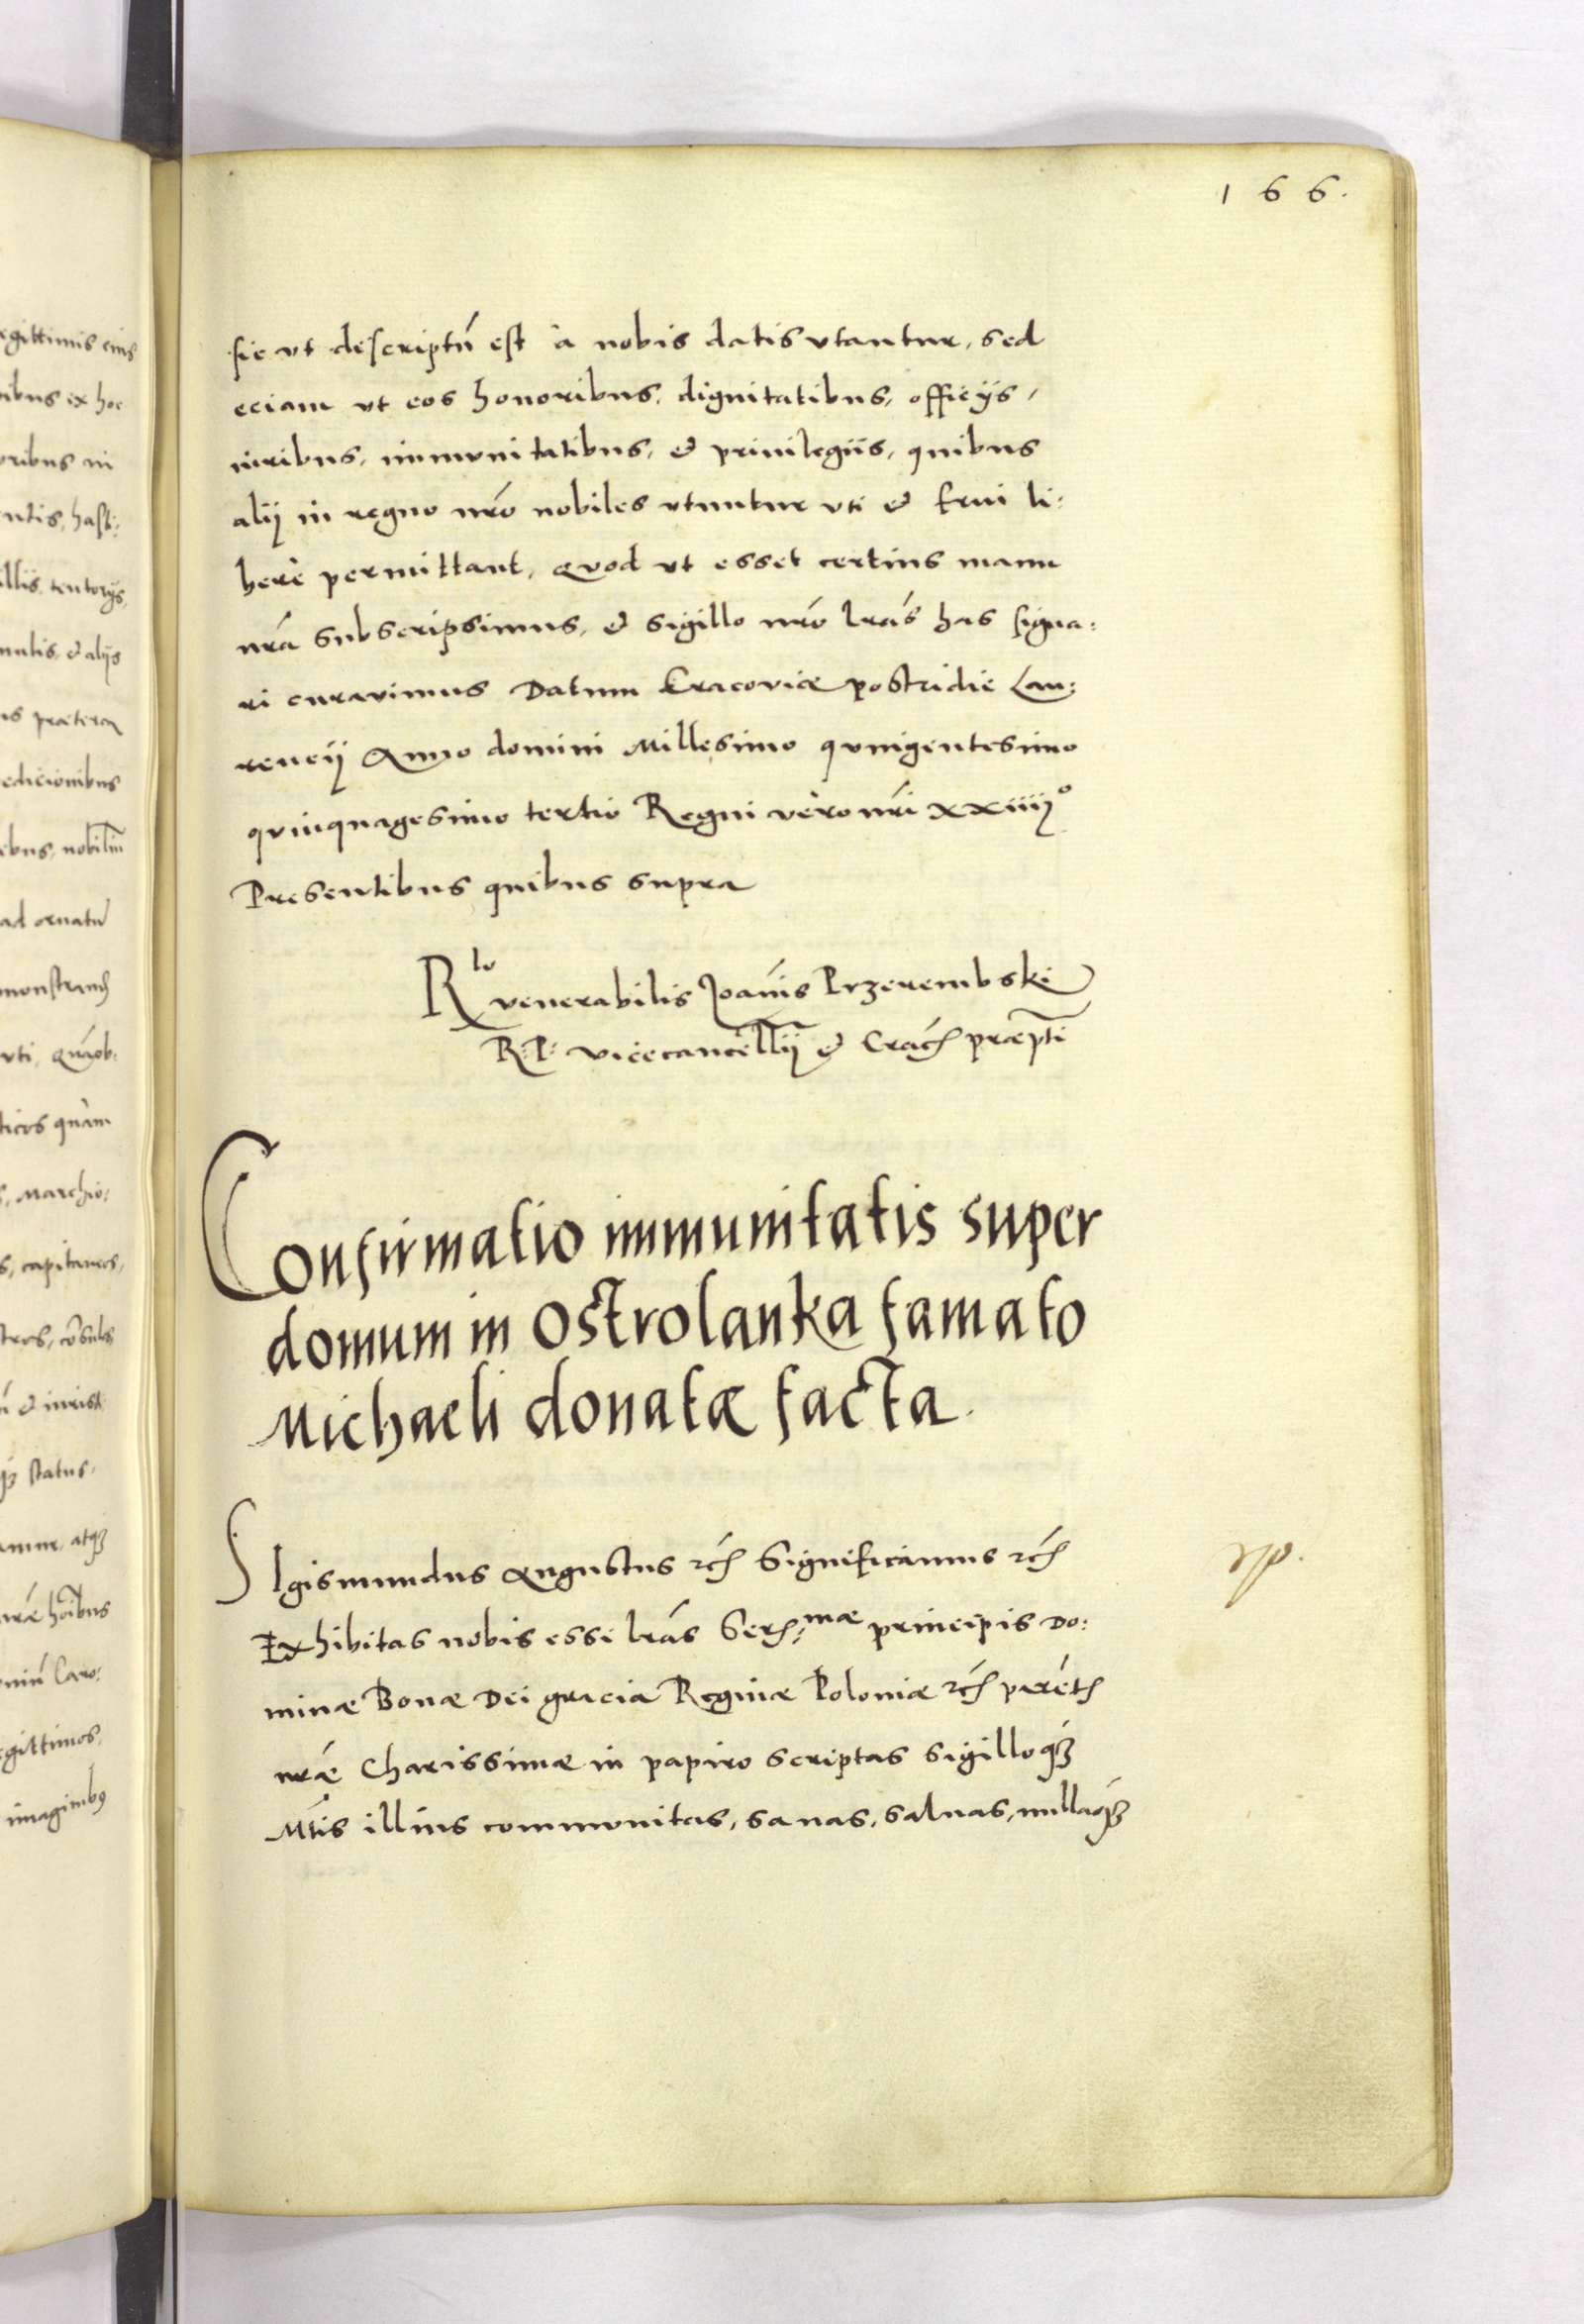 166.
sic ut descriptū est à nobis datis vtantur, sed
eciam ut eos honoribus, dignitatibus, officijs,
iuribus, immunitatibus, & priuilegiis, quibus
alij in regno nr̄o nobiles vtuntur vti & frui li:
berè permittant, Quod ut esset certius manu
nr̄a subscripsimus, & sigillo nr̄o lrās has signa:
ri curavimus Datum Cracoviæ postridie Lau:
rencij Anno domini Millesimo quingentesimo
quinquagesimo tertio Regni vero nr̄i xxiiij°
Presentibus quibus supra
R<sup>lo</sup> venerabilis Joānis Przerembski
R: P: vicecancellīj & Crac̄ præptī
Confirmatio immunitatis super
domum in Ostrolanka famato
Michaeli donatæ facta.
SIgismundus Augustus &c̄ Significamus &c̄
Exhibitas nobis esse lrās Ser:mæ principis Do:
minæ Bonæ Dei gracia Reginæ Poloniæ &c̄ parēt
nr̄æ Charissimæ in papiro scriptas sigilloq
Mtīs illius communitas, sanas, saluas, nullaq
egittimis eius
ibus ex hoc
oribus in
entis, hasti:
illis, tentorijs,
& alijs
us præterea
edicionibus
ibus, nobiliū
ad ornatū
vti, Quāob:
quàm
, Marchio:
s, capitaneos,
status,
atq
hoībus
egittimos,